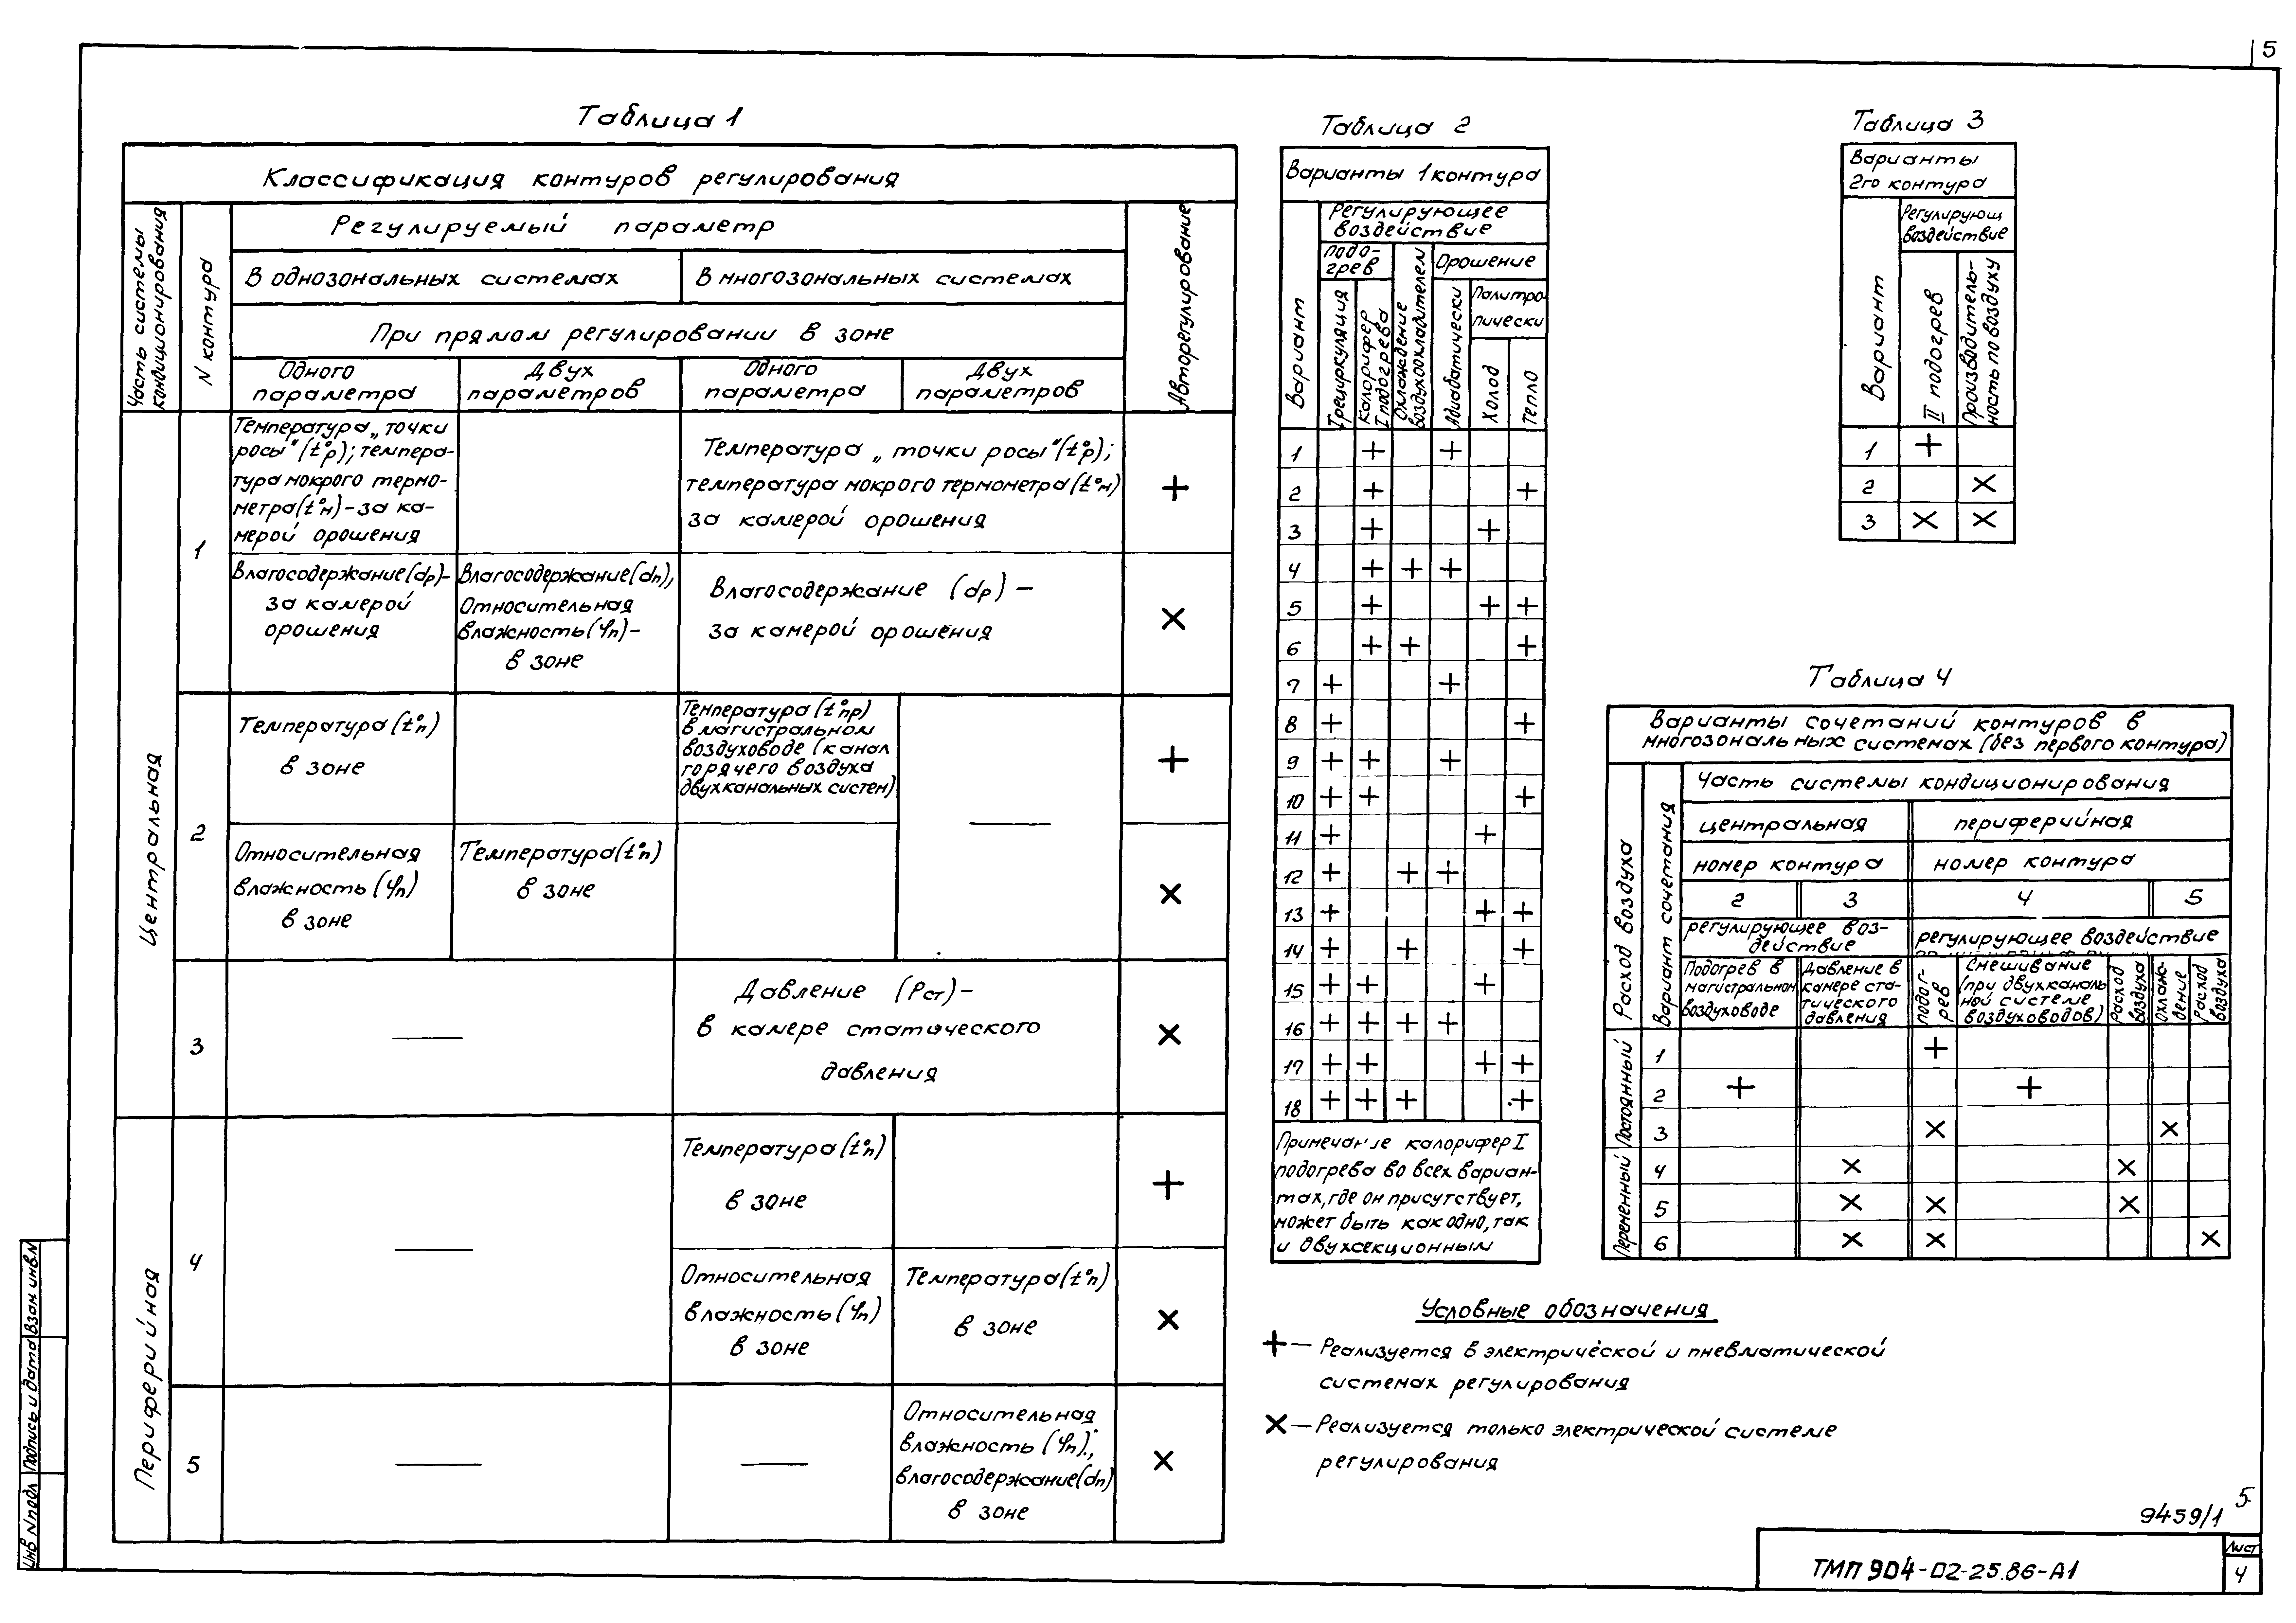 5
Таблица 1
Классификация контуров регулирования
Часть системы кондиционирования
N контура
Регулируемый параметр
Авторегулирование
В однозональных системах
В многозональных системах
При прямом регулировании в зоне
Одного параметра
Двух параметров
Одного параметра
Двух параметров
Центральная
1
Температура „точки
росы"(t°р); темпера-
тура мокрого термо-
метра(t°м)-за ка-
мерой орошения
Температура „точки росы"(t°р);
температура мокрого термометра(t°м)
за камерой орошения
+
Влагосодержание(dр)-
за камерой
орошения
Влагосодержание(dп),
Относительная
влажность(φп)-
в зоне
Влагосодержание (dр) —
за камерой орошения
×
2
Температура(t°п)
в зоне
Температура(t°пр)
в магистральном
воздуховоде (канал
горячего воздуха
двухканальных систем)
—
+
Относительная
влажность(φп)
в зоне
Температура(t°п)
в зоне
×
3
—
Давление (Рст)-
в камере статического
давления
×
Периферийная
4
—
Температура(t°п)
в зоне
+
Относительная
влажность(φп)
в зоне
Температура(t°п)
в зоне
×
5
—
—
Относительная
влажность(φп);
влагосодержание(dп)
в зоне
×
Таблица 2
Варианты 1 контура
Вариант
Регулирующее
воздействие
подо-
грев
Охлаждение
воздухоохладителем
Орошение
Iрециркуляция
Калорифер
I подогрева
Адиабатически
Политро-
пически
Холод
Тепло
1 + +
2 + +
3 + +
4 + + +
5 + + +
6 + + +
7 + +
8 + +
9 + + +
10 + + +
11 + +
12 + + +
13 + + +
14 + + +
15 + + +
16 + + + +
17 + + + +
18 + + + +
Примечание калорифер I
подогрева во всех вариан-
тах, где он присутствует,
может быть как одно, так
и двухсекционным
Таблица 3
Варианты
2го контура
Вариант
Регулирующ
воздействие
II подогрев
Производитель-
ность по воздуху
1 +
2 ×
3 × ×
Таблица 4
Варианты сочетаний контуров в
многозональных системах (без первого контура)
Расход воздуха
Вариант сочетания
Часть системы кондиционирования
центральная
периферийная
номер контура
номер контура
2 3 4 5
регулирующее воз-
действие
регулирующее воздействие
Подогрев в
магистральном
воздуховоде
Давление в
камере ста-
тического
давления
подог-
рев
Смешивание
(при двухканаль
ной системе
воздуховодов)
Расход
воздуха
Охлаж-
дение
Расход
воздуха
Постоянный
1 +
2 + +
3 × ×
Переменный
4 × ×
5 × × ×
6 × × ×
Условные обозначения
+ — Реализуется в электрической и пневматической
системах регулирования
× — Реализуется только электрической системе
регулирования
Инв N подл
Подпись и дата
Взам. инв.N
9459/1
5
ТМП 904-02-25.86-А1
Лист
4